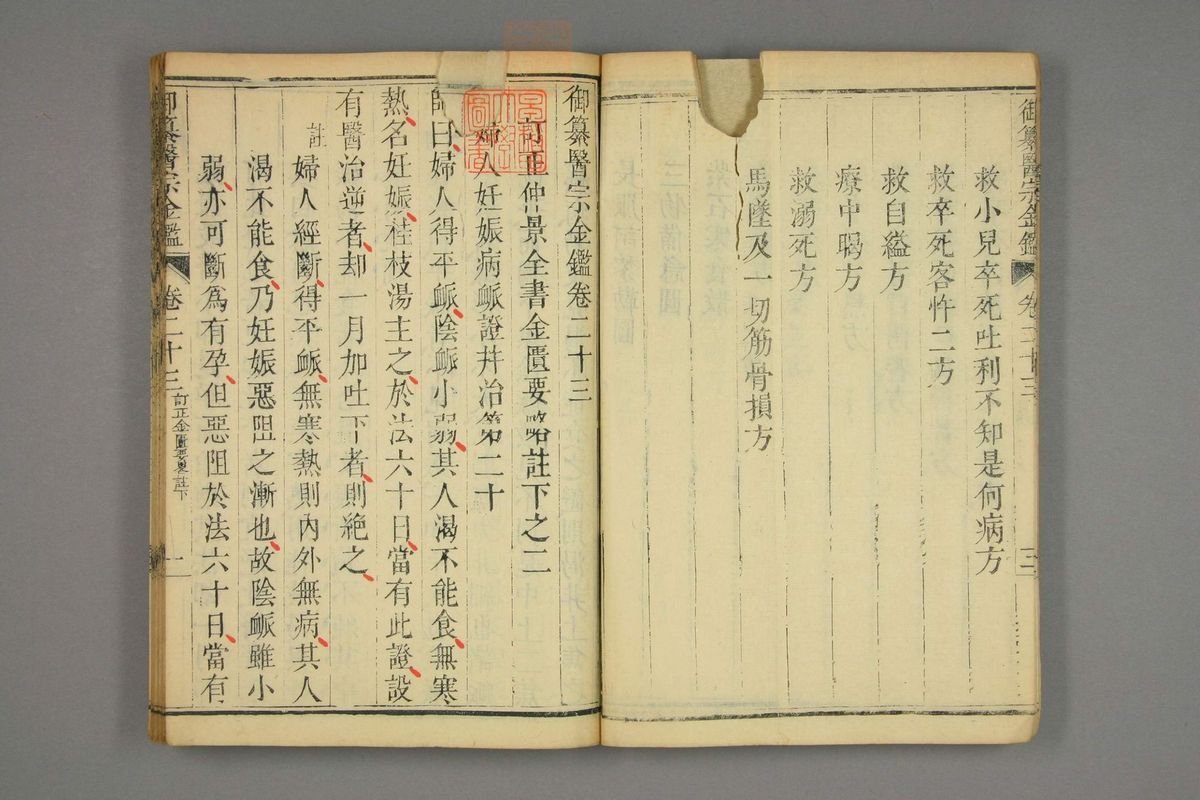 御纂醫宗金鑑 卷二十三 三
救小兒卒死吐利不知是何病方
救卒死客忤二方
救自縊方
療中暍方
救溺死方
馬墜及一切筋骨損方
御纂醫宗金鑑卷二十三
訂正仲景全書金匱要略註下之二
婦人妊娠病脈證并治第二十
師曰婦人得平脈陰脈小弱其人渴不能食無寒
熱名妊娠桂枝湯主之於法六十日當有此證設
有醫治逆者却一月加吐下者則絕之
註
婦人經斷得平脈無寒熱則內外無病其人
渴不能食乃妊娠惡阻之漸也故陰脈雖小
弱亦可斷為有孕但惡阻於法六十日當有
御纂醫宗金鑑 卷二十三 訂正金匱要畧註下 一